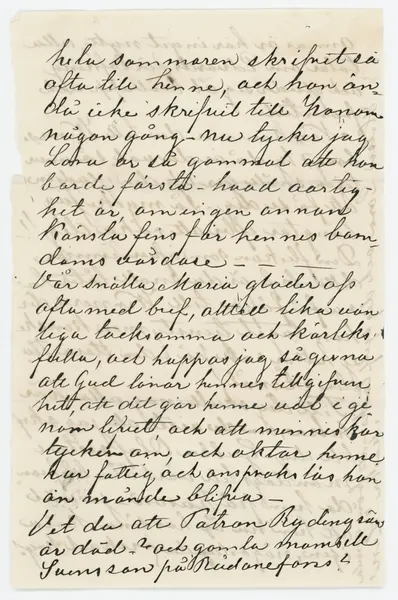 hela sommaren skrifvit så
ofta till henne, och hon än-
då icke skrifvit till honom
någon gång – nu tycker jag
Lova är så gammal att hon
borde förstå – hvad aartig-
het är, om ingen annan
känsla fins för hennes barn-
doms vårdare –
Vår snälla Maria gläder oss
ofta med bref, alltid lika vän-
liga tacksamma och kärleks-
fulla, och hoppas jag så gerna
att Gud lönar hennes tillgifven
het, att det går henne väl i ge
nom lifvet, och att menniskor
tycker om, och aktar henne
hur fattig och anspråkslös hon
än månde blifva –
Vet du att Patron Rydingsvärd
är död – ? och gamla mamsell
Svensson på Rådanefors?